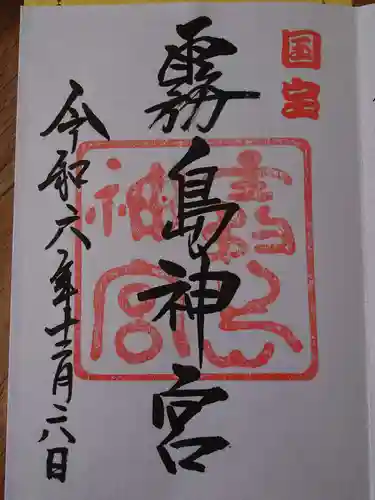 国宝
霧島神宮
令和六年十二月二八日